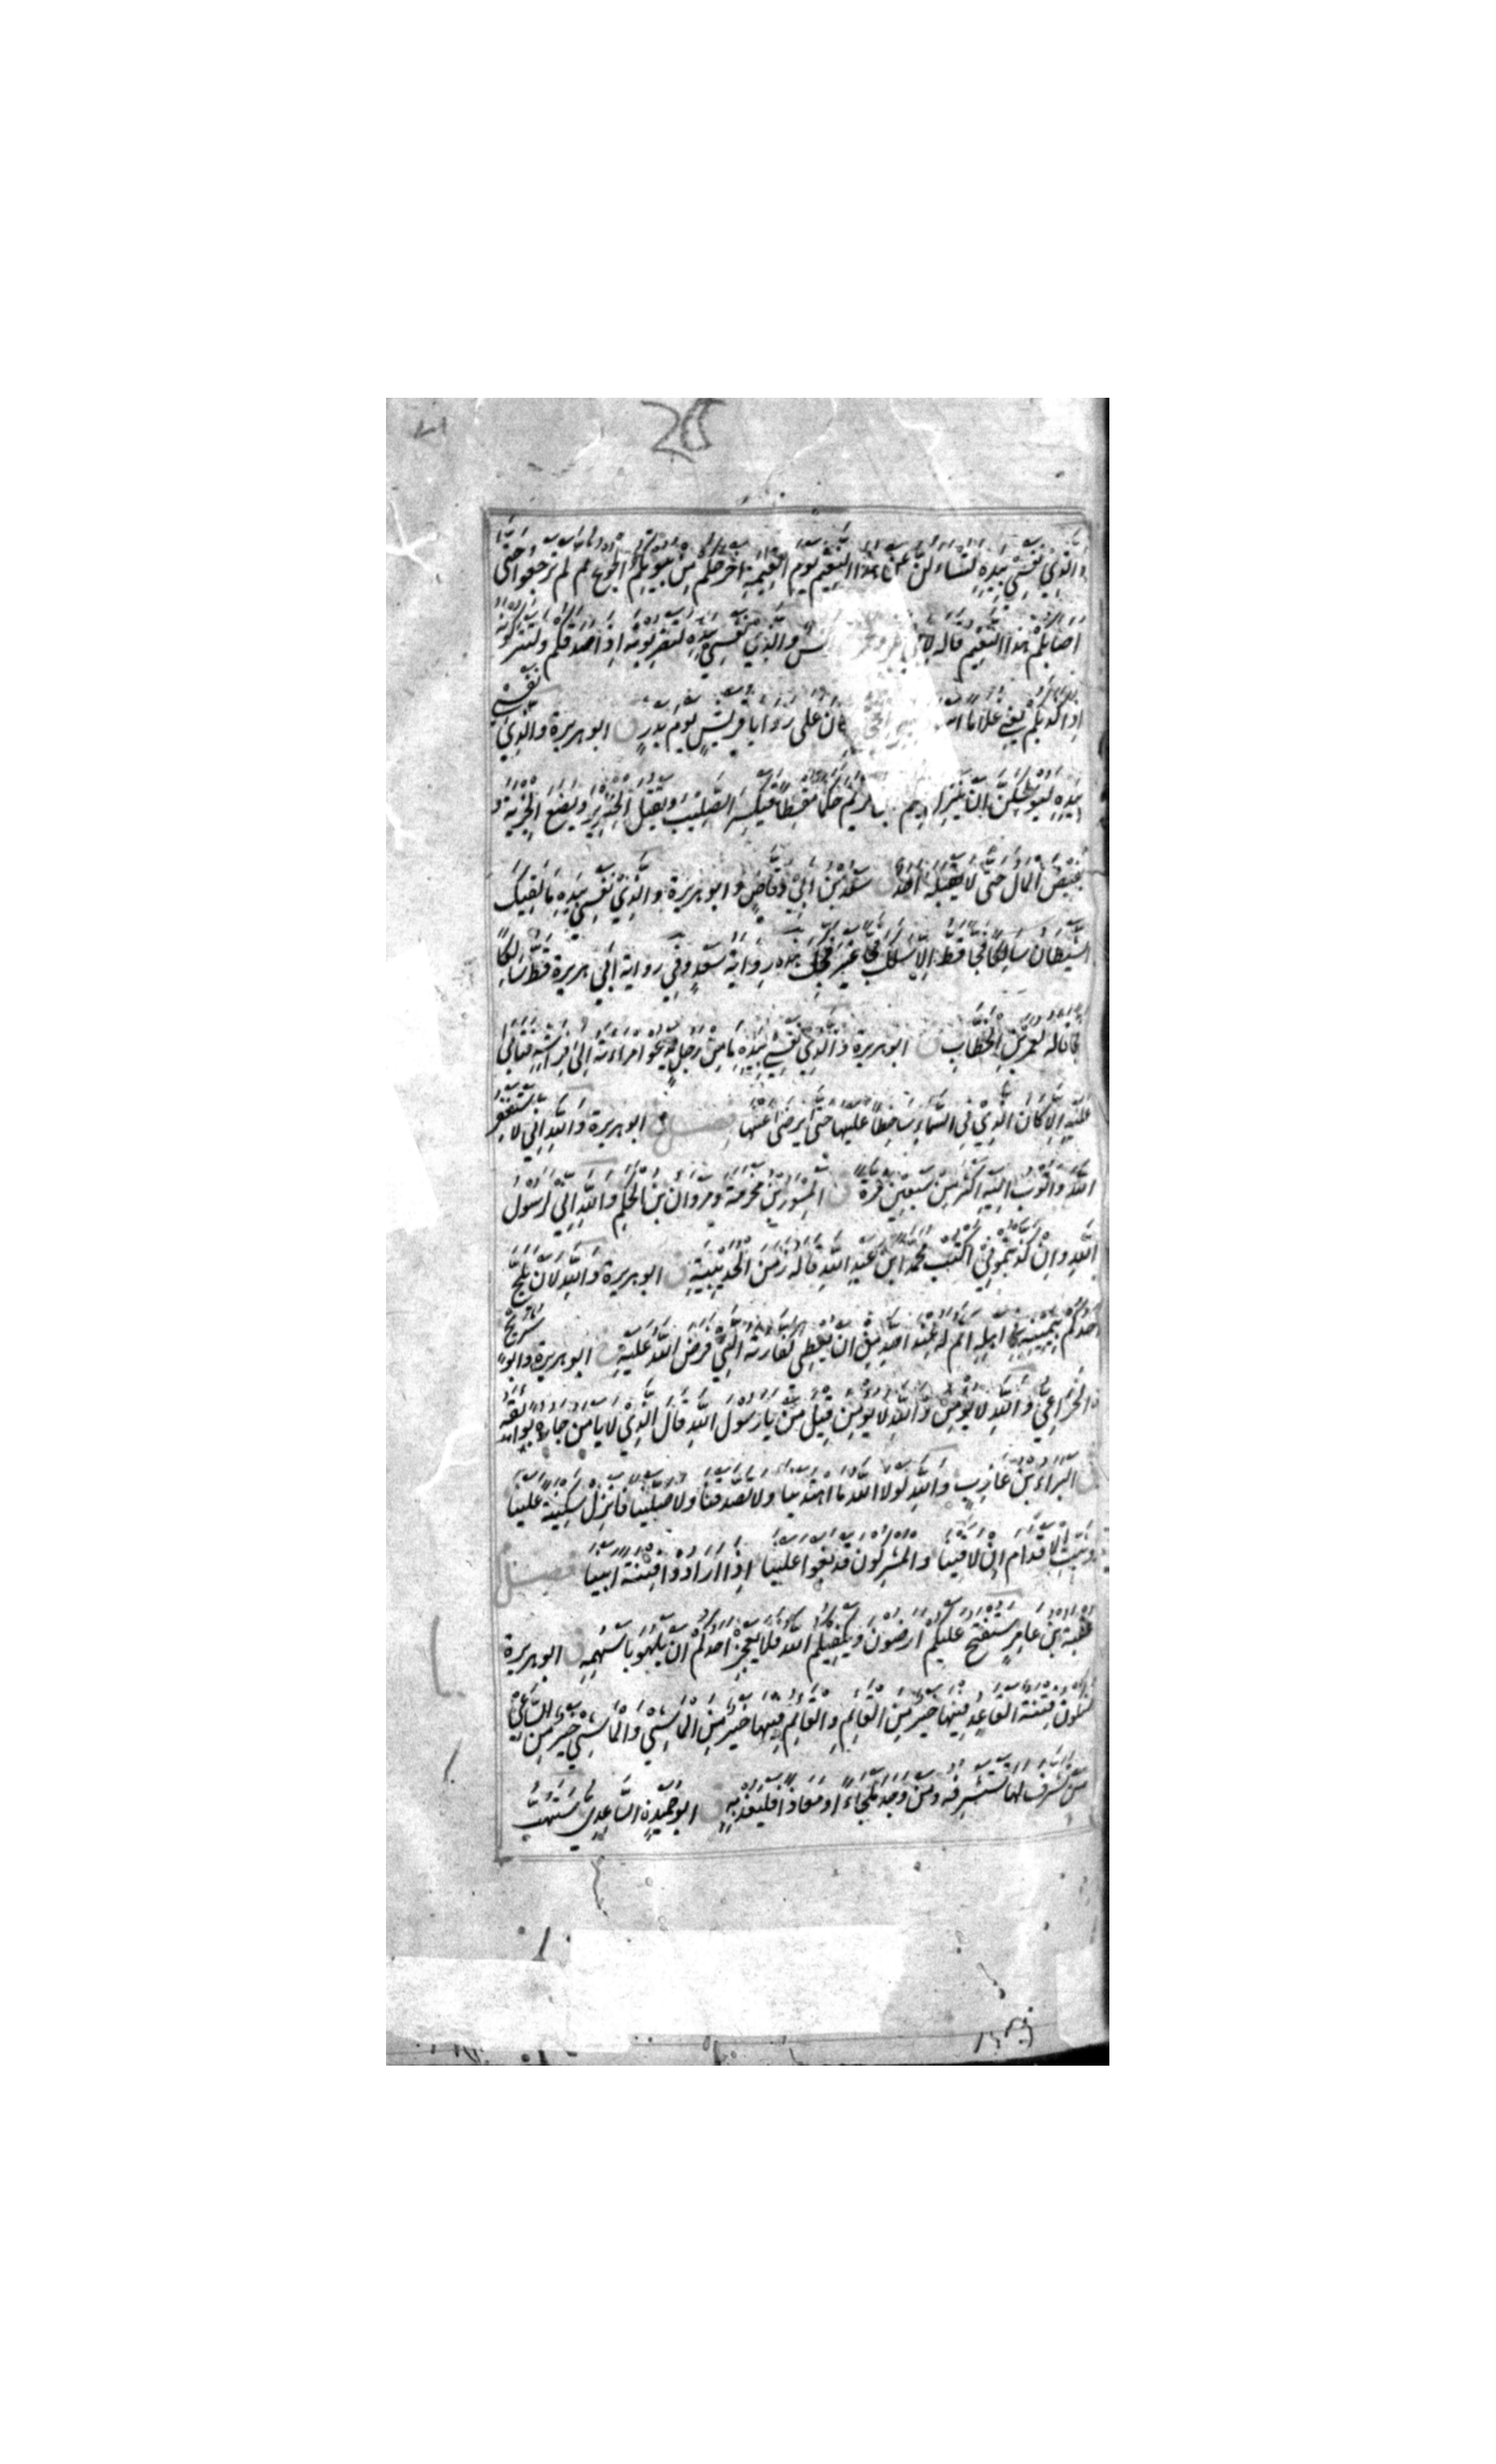 28
والذي نفسي بيده لتسالن عن هذا النعيم يوم القيمة اخرجكم من بيوتكم الجوع ثم لم ترجعوا حتى
اصابكم هذا النعيم قاله لابي انس والذي نفسي بيده لتضربونه اذا صدقكم ولتتركونه
اذا كذبكم يعني غلاما كان على روايا قريش يوم بدر ق ابو هريرة والذي نفسي
بيده ليوشكن ان ينزل فيكم مريم حكما مقسطا فيكسر الصليب ويقتل الخنزير ويضع الجزية و
يفيض المال حتى لا يقبله احد ق سعد بن ابي وقاص وابو هريرة والذي نفسي بيده ما لقيك
الشيطان سالكا فجا قط الا سلك فجا غير فجك هذه رواية سعد وفي رواية ابي هريرة قط سالكا
فجا قاله لعمر بن الخطاب ق ابو هريرة والذي نفسي بيده ما من رجل يدعو امراءته الى فراشه فتابى
عليه الا كان الذي في السماء ساخطا عليها حتى يرضى عنها فصل خ ابو هريرة والله اني لاستغفر
الله واتوب اليه اكثر من سبعين مرة ق المسور بن مخرمة ومروان بن الحكم والله اني لرسول
الله وان كذبتموني اكتب محمد ابن عبد الله قاله زمن الحديبية ق ابو هريرة والله لان يلج
احدكم بيمينه في اهله اثم له عند الله من ان يعطي كفارته التي فرض الله عليه خ ابو هريرة وابو شريح
الخزاعي والله لا يومن والله لا يومن قيل من يا رسول الله قال الذي لا يامن جاره بوايقه
ق البراء بن عازب والله لولا الله ما اهتدينا ولا تصدقنا ولا صلينا فانزل سكينة علينا
وثبت الاقدام ان لاقينا والمشركون قد بغوا علينا اذا ارادوا فتنة ابينا فصل
عقبة بن عامر ستفتح عليكم ارضون ويكفيكم الله فلا يعجز احدكم ان يلهو باسهمه ق ابو هريرة
ستكون فتنة القاعد فيها خير من القائم والقائم فيها خير من الماشي والماشي خير من الساعي
من تشرف لها تستشرفه ومن وجد ملجاء او معاذا فليعذ به ق ابو حميد الساعدي ستهب